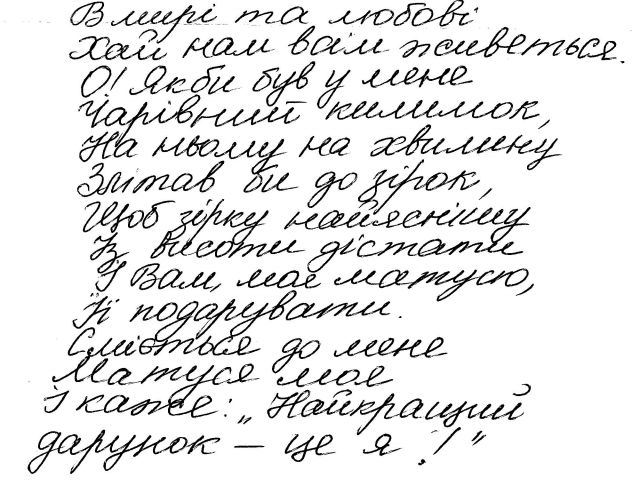 В мирі та любові
Хай нам вам живеться.
О! Якби був у мене
Чарівний килимок,
На ньому на хвилину
Злітав би до зірок,
Щоб зірку найяснішу
Із висоти дістати
І Вам, моя матусю,
Її подарувати.
Сміється до мене
Матуся моя
І каже: „Найкращий
дарунок – це я!"